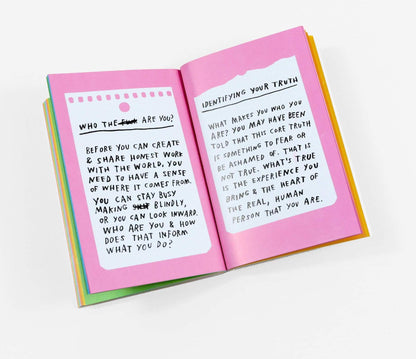 WHO THE F*CK ARE YOU?
BEFORE YOU CAN CREATE
& SHARE HONEST WORK
WITH THE WORLD, YOU
NEED TO HAVE A SENSE
OF WHERE IT COMES FROM.
YOU CAN STAY BUSY
MAKING BLINDLY,
OR YOU CAN LOOK INWARD.
WHO ARE YOU & HOW
DOES THAT INFORM
WHAT YOU DO?
IDENTIFYING YOUR TRUTH
WHAT MAKES YOU WHO YOU
ARE? YOU MAY HAVE BEEN
TOLD THAT THIS CORE TRUTH
IS SOMETHING TO FEAR OR
BE ASHAMED OF. THAT IS
NOT TRUE. WHAT'S TRUE
IS THE EXPERIENCE YOU
BRING & THE HEART OF
THE REAL, HUMAN
PERSON THAT YOU ARE.